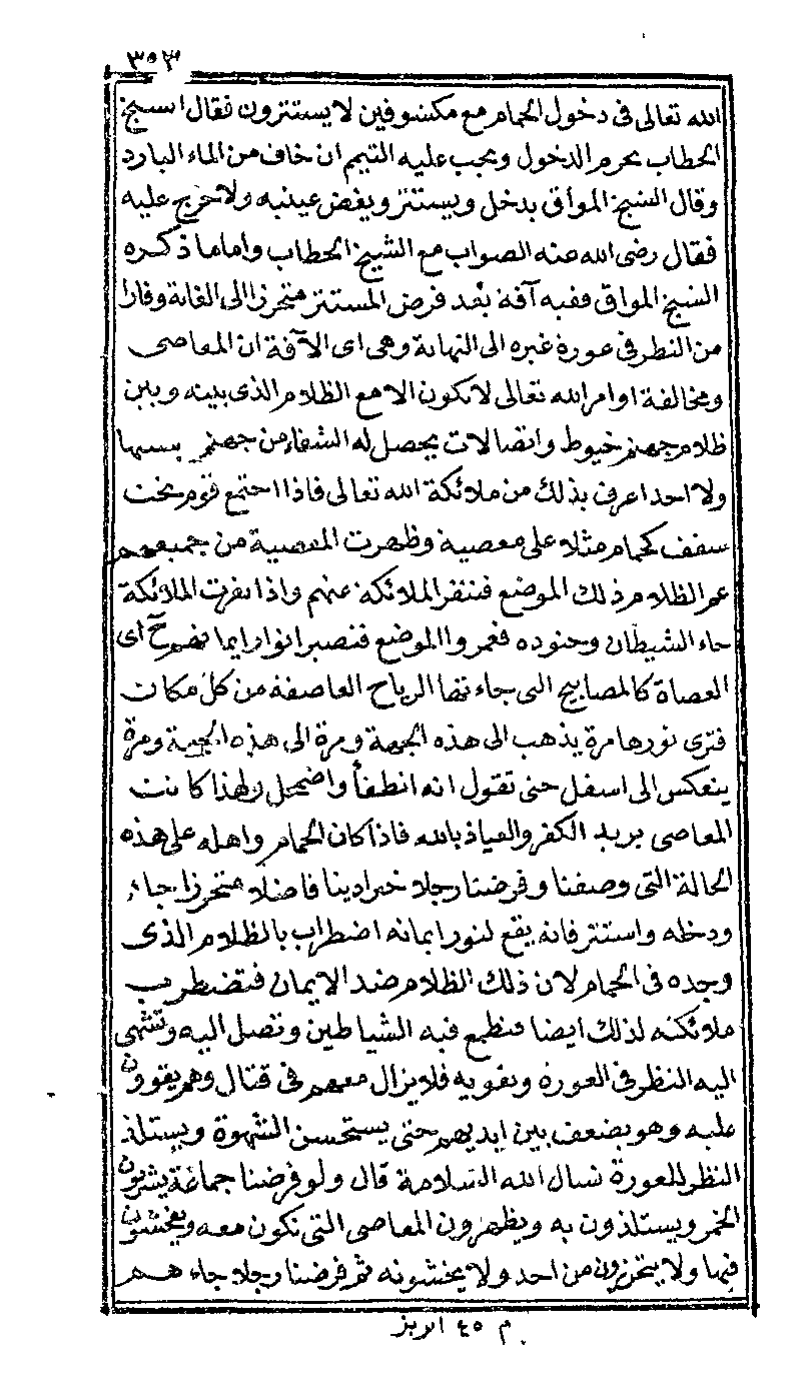 ٣٥٣
الله تعالى فى دخول الحمام مع مكشوفين لا يستترون فقال الشيخ
الحطاب يحرم الدخول ويجب عليه التيمم ان خاف من الماء البارد
وقال الشيخ المواق يدخل ويستتر ويغض عينيه ولا حرج عليه
فقال رضى الله عنه الصواب مع الشيخ الحطاب واما ما ذكره
الشيخ المواق ففيه آفة بعد فرض المستتر متحرزا الى الغاية وفارا
من النظر فى عورة غيره الى النهاية وهى اى الآفة ان المعاصى
ومخالفة اوامر الله تعالى لا تكون الا مع الظلام الذى بينه وبين
ظلام جهنم خيوط واتصالات يحصل له الشقاء من جهنم بسببها
ولا احد اعرف بذلك من ملائكة الله تعالى فاذا اجتمع قوم تحت
سقف كحمام مثلا على معصية وظهرت المعصية من جميعهم
عم الظلام ذلك الموضع فتنفر الملائكة عنهم واذا نفرت الملائكة
جاء الشيطان وجنوده فعمروا الموضع فتصير انوار ايمانهم ح اى
العصاة كالمصابيح التى جاءتها الرياح العاصفة من كل مكان
فترى نورها مرة يذهب الى هذه الجهة ومرة الى هذه الجهة ومرة
ينعكس الى اسفل حتى تقول انه انطفأ واضمحل ولهذا كانت
المعاصى بريد الكفر والعياذ بالله فاذا كان الحمام واهله على هذه
الحالة التى وصفنا وفرضنا رجلا خيرا دينا فاضلا متحرزا جاء
ودخله واستتر فانه يقع لنور ايمانه اضطراب بالظلام الذى
وجده فى الحمام لان ذلك الظلام ضد الايمان فتضطرب
ملائكته لذلك ايضا فتطمع فيه الشياطين وتصل اليه وتشهى
اليه النظر فى العورة وتغويه فلا يزال معهم فى قتال وهم يقوون
عليه وهو يضعف بين ايديهم حتى يستحسن الشهوة ويستلذ
النظر للعورة نسال الله السلامة قال ولو فرضنا جماعة يشربون
الخمر ويستلذون به ويظهرون المعاصى التى تكون معه ويفحشون
فيها ولا يتحرزون من احد ولا يخشونه ثم فرضنا رجلا جاءهم
م ٤٥ الابز